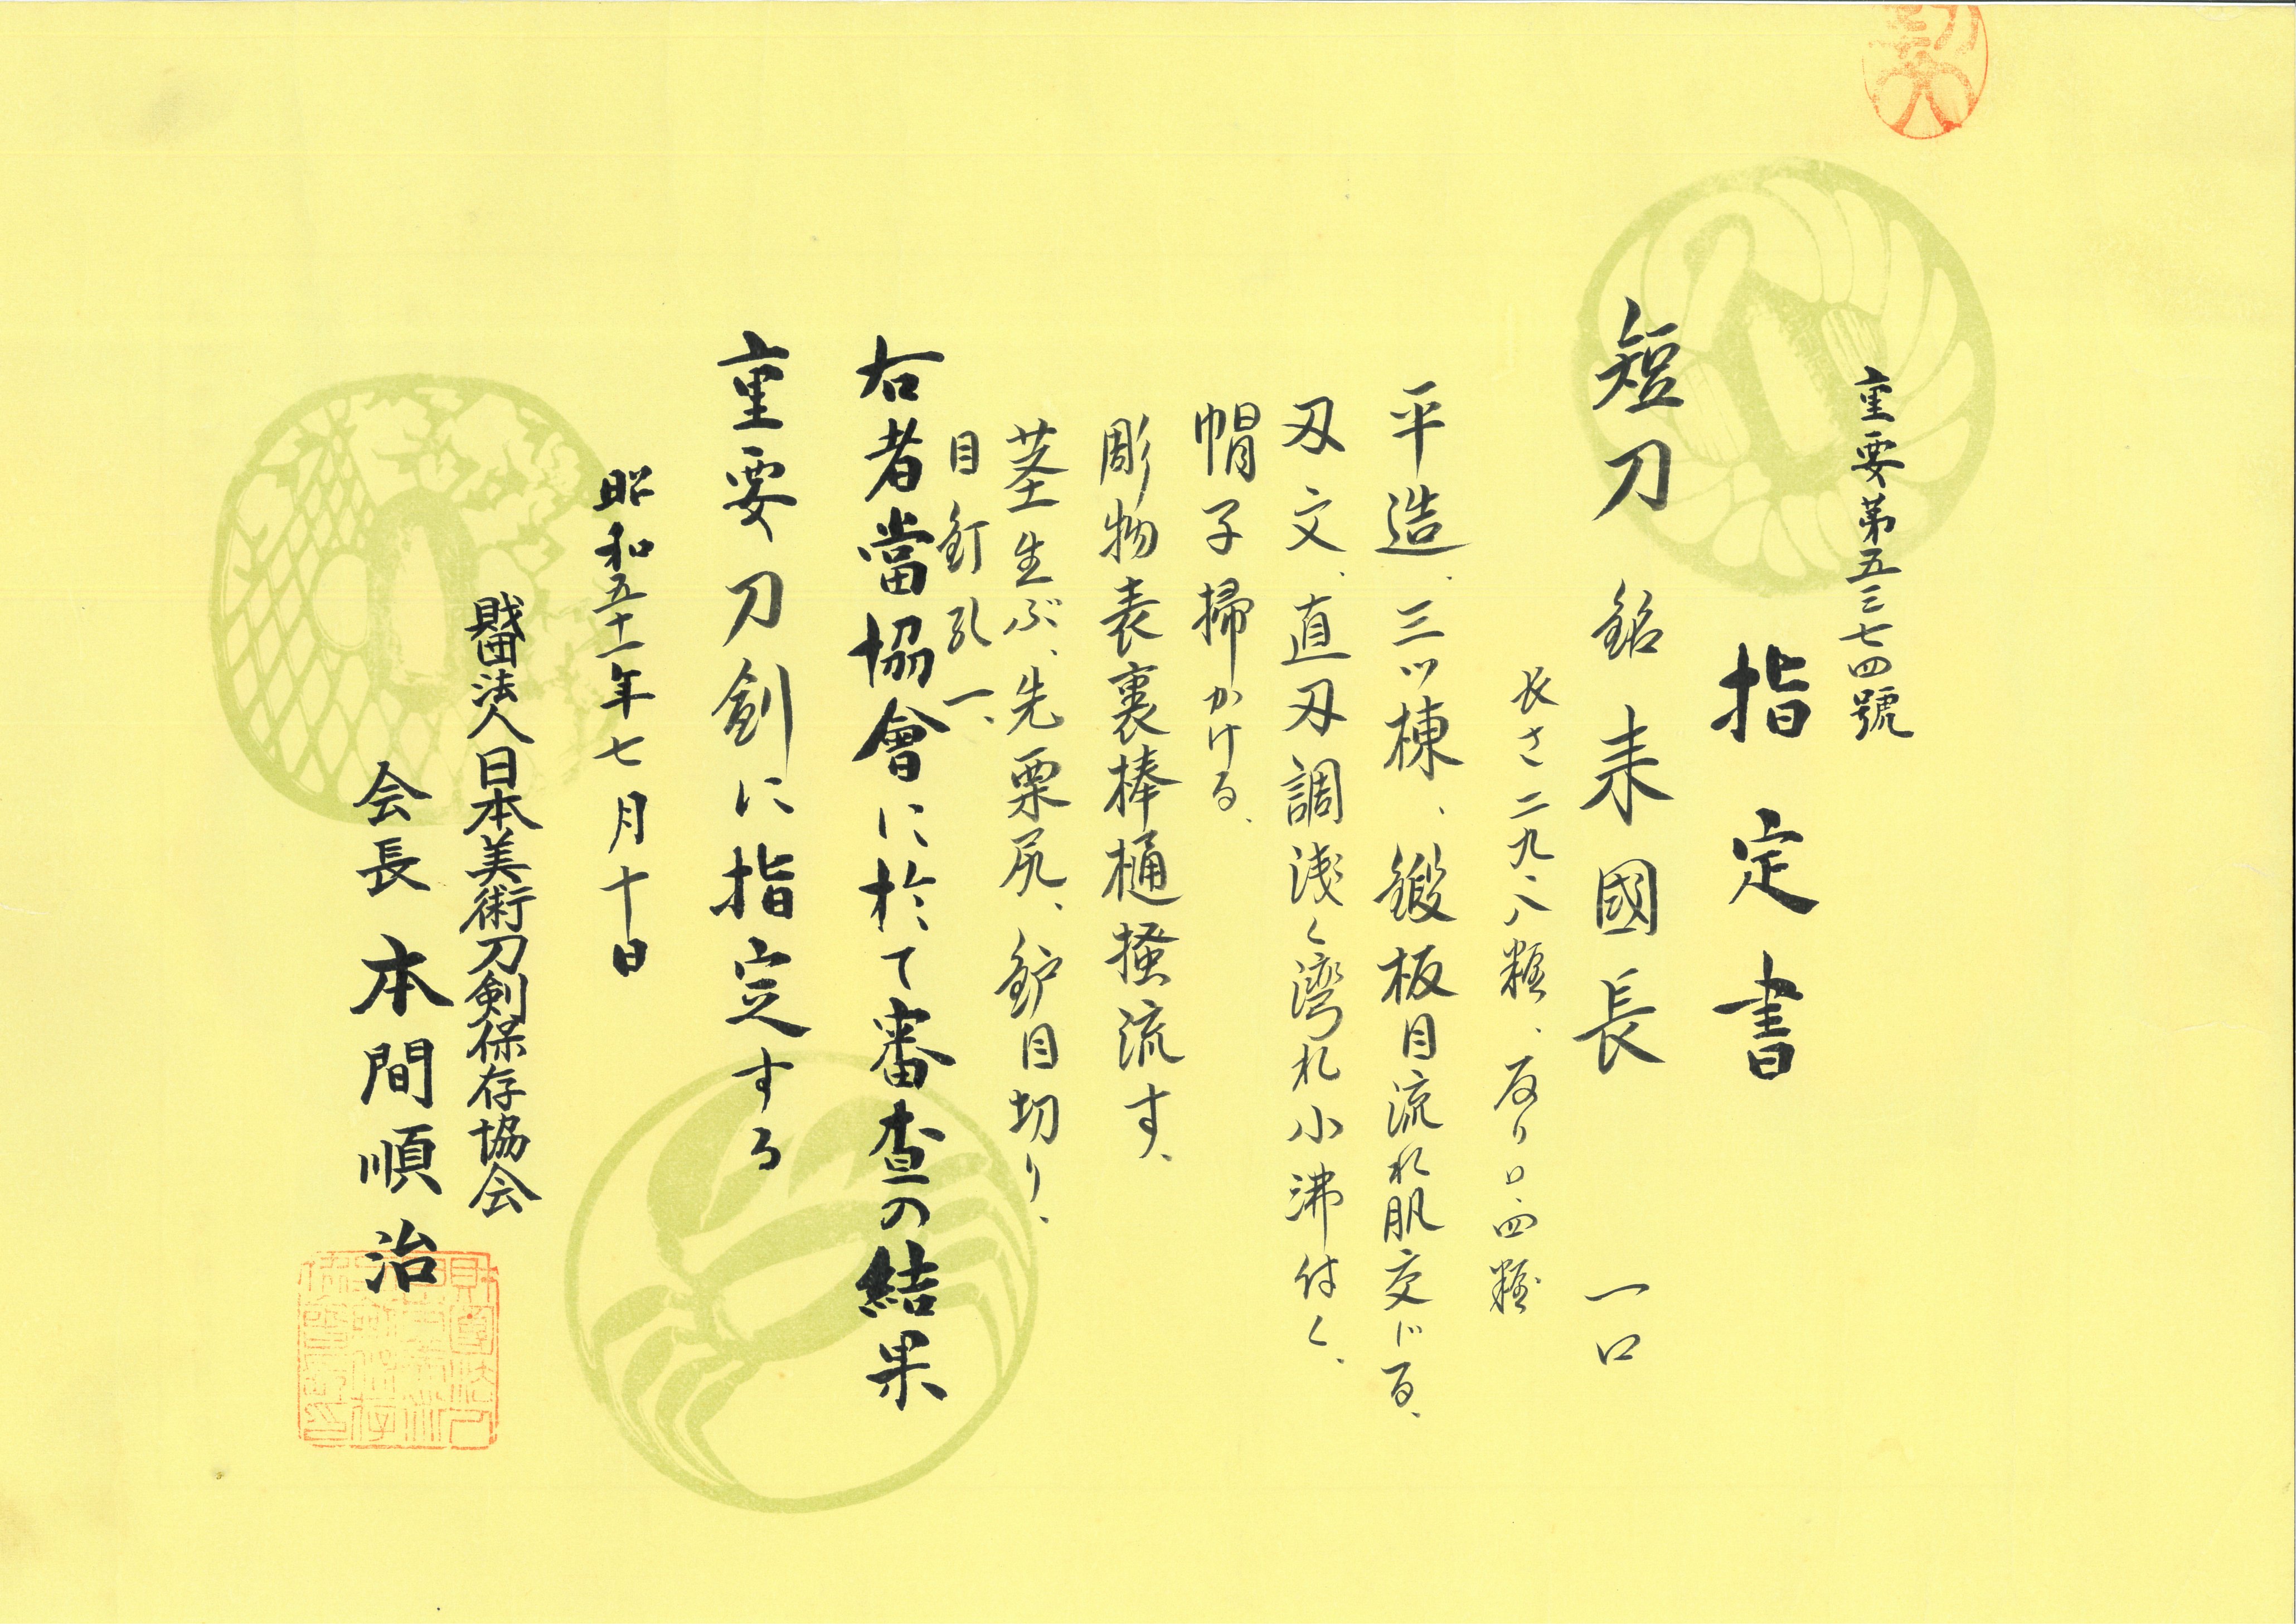 重要第五三七四號
指定書
短刀 銘 来國長 一口
長さ二九・八糎、反り〇・四糎
平造、三ツ棟、鍛板目流れ肌交じる、
刄文、直刄調浅く湾れ小沸付く、
帽子掃かける、
彫物表裏棒樋掻流す、
茎生ぶ、先栗尻、鉇目切り、
目釘孔一、
右者當協會に於て審査の結果
重要刀剣に指定する
昭和五十一年七月十日
財団法人日本美術刀剣保存協会
会長 本間順治